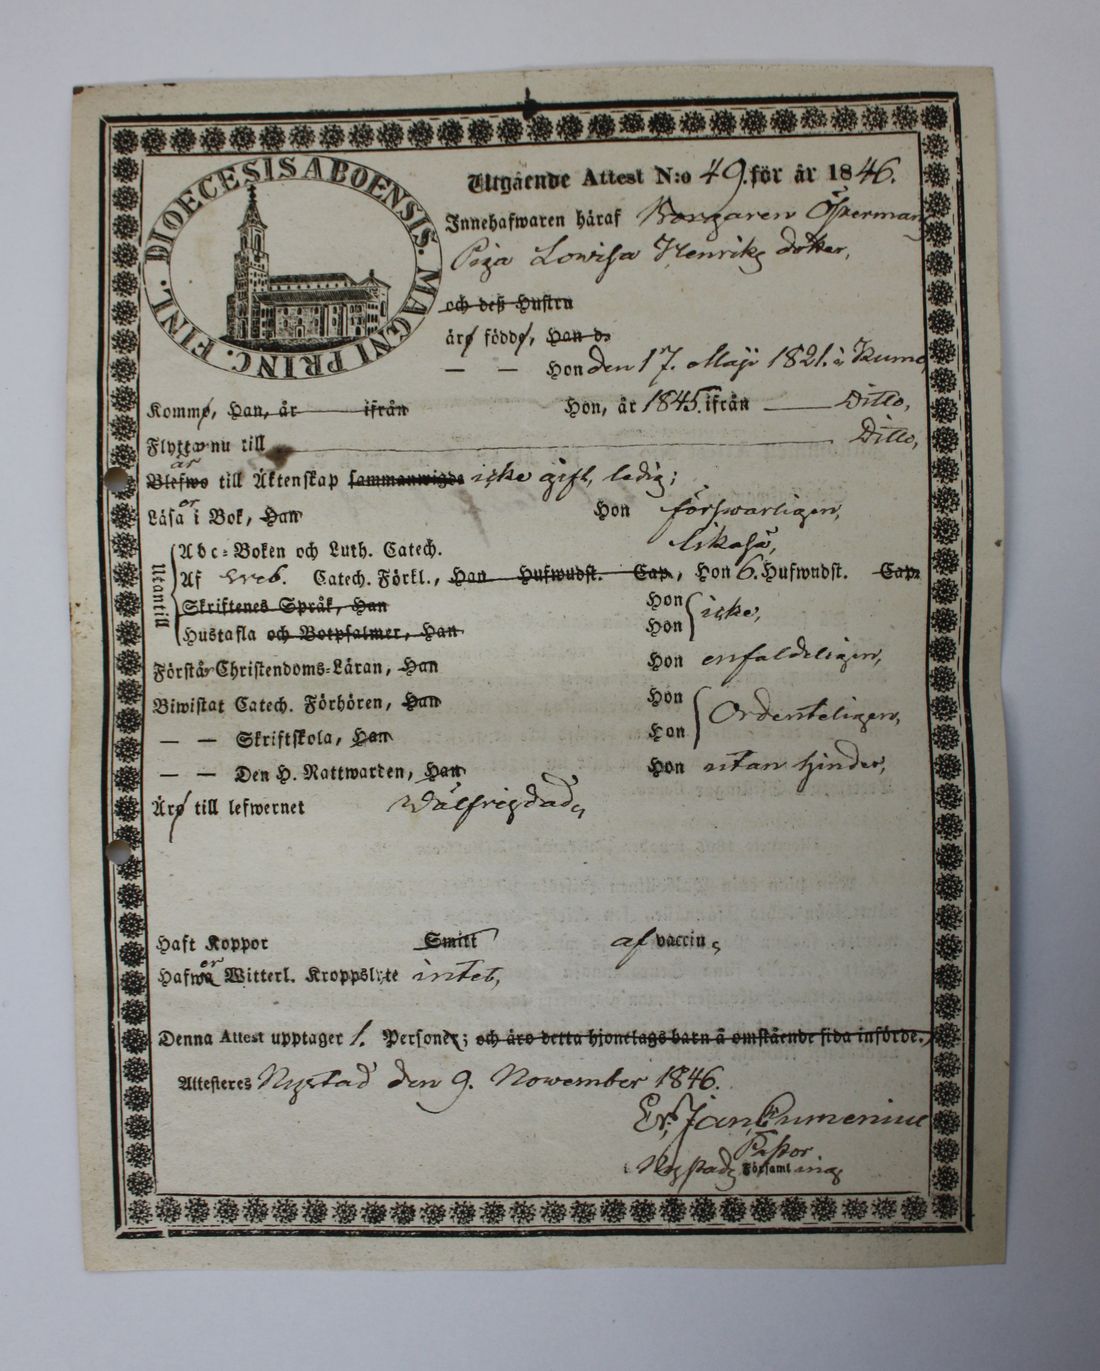 DIOECESIS ABOENSIS. MAGNI PRINC. FINL.
Utgående Attest N:o 49. för år 1846.
Innehafwaren häraf Borgaren Öhermans
Piga Lowisa Henriksdotter,
och deß Hustru
äro födde, Han d.
— — Hon den 17. Maji 1821. i Kumo
Komme, Han, år ifrån Hon, år 1845. ifrån Ditto,
Flyttar nu till Ditto,
är
Blefwo till Äktenskap sammanwigde icke gift, ledig;
er
Läsa i Bok, Han Hon förswarligen,
Utantill
Abc-Boken och Luth. Catech. likaså,
Af Sweb. Catech. Förkl., Han Hufwudst. Cap., Hon 6. Hufwudst. Cap.
Skriftenes Språk, Han Hon
Hustafla och Botpsalmer, Han Hon icke,
Förstår Christendoms-Läran, Han Hon enfaldeligen,
Biwistat Catech. Förhören, Han Hon
— — Skriftskola, Han Hon Ordenteligen,
— — Den H. Nattwarden, Han Hon utan hinder,
Äro till lefwernet Wälfrägdad,
Haft Koppor Smitt af vaccin,
er
Hafwa Witterl. Kroppslyte intet,
Denna Attest upptager 1. Personer; och äro detta hjonelags barn å omstående sida införde.
Attesteres Nystad den 9. November 1846.
Er. Joh. Eumenius
Pastor
i Nystads Församling